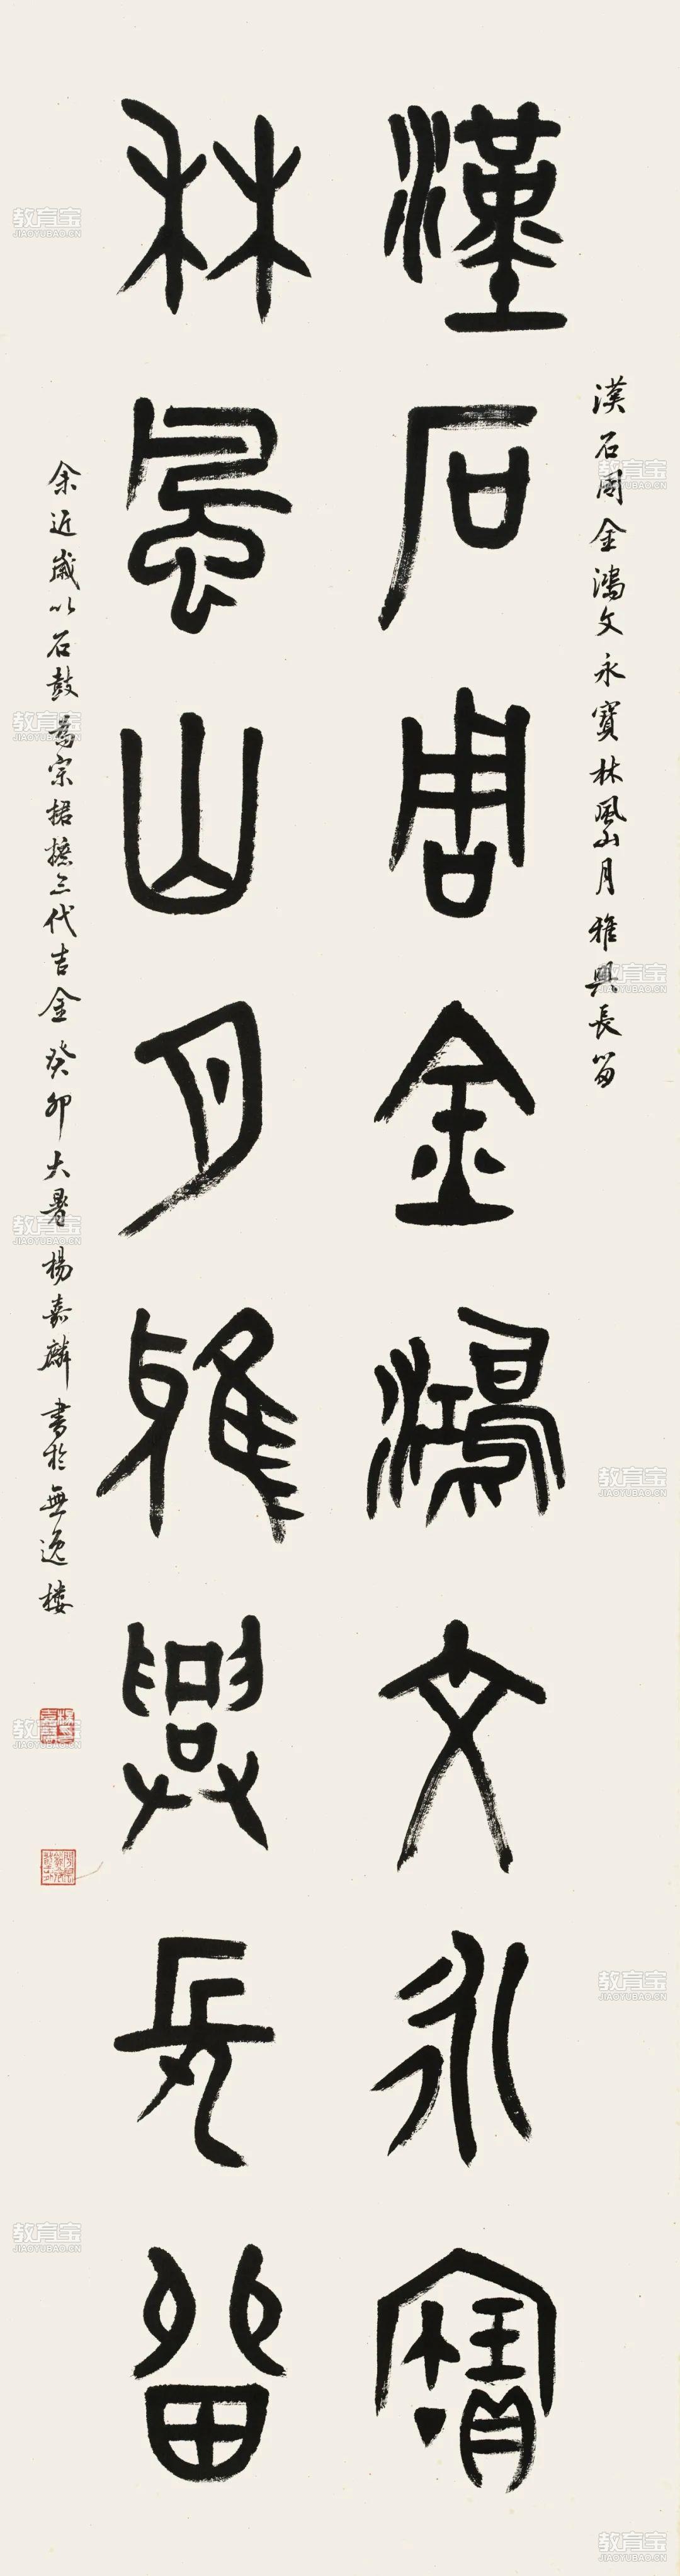 漢石周金鴻文永寶
林風山月雅興長留
漢石周金鴻文永寶林風山月雅興長留
余近歲以石鼓為宗捃摭三代吉金癸卯大暑楊嘉麟書於無逸樓
教育宝
JIAOYUBAO.CN